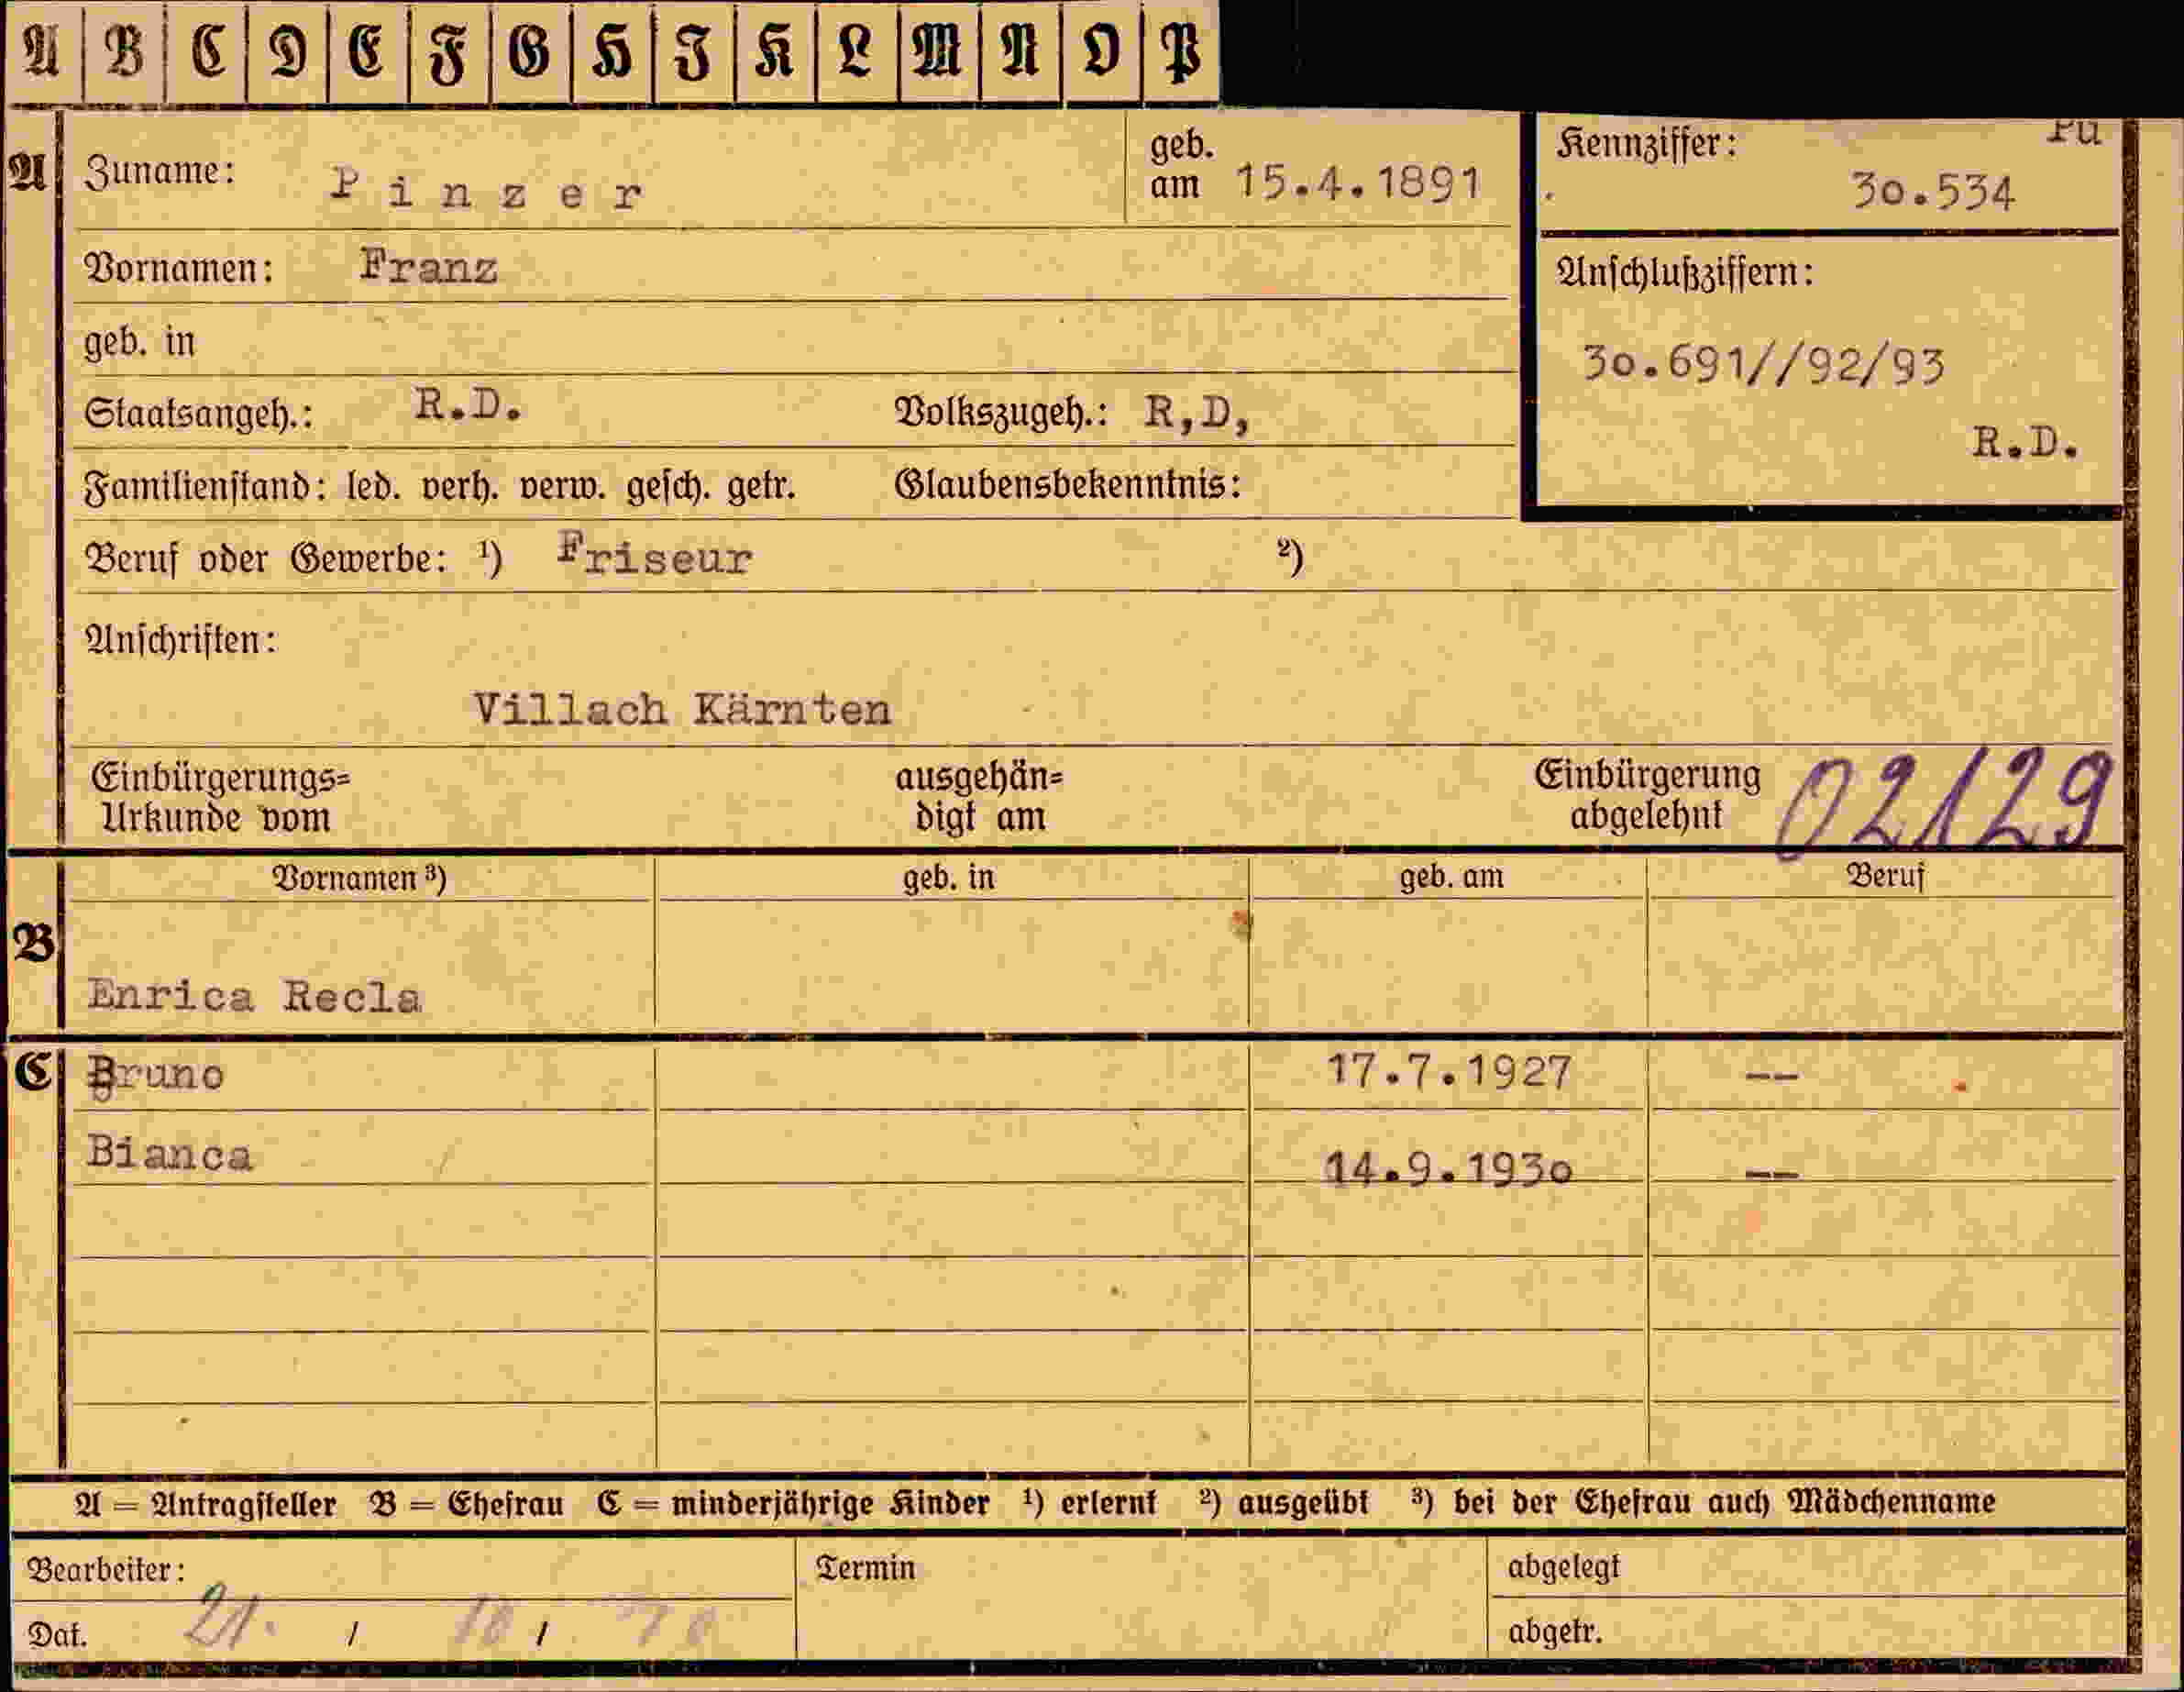 A B C D E F G H J K L M N O P
A Zuname: Pinzer geb. am 15.4.1891
Kennziffer: Pu
30.534
Vornamen: Franz
Anschlußziffern:
geb. in
30.691//92/93
Staatsangeh.: R.D. Volkszugeh.: R,D,
R.D.
Familienstand: led. verh. verw. gesch. getr. Glaubensbekenntnis:
Beruf oder Gewerbe: ¹) Friseur ²)
Anschriften:
Villach Kärnten
Einbürgerungs= ausgehän= Einbürgerung 02129
Urkunde vom digt am abgelehnt
Vornamen ³) geb. in geb. am Beruf
B
Enrica Recla
C Bruno 17.7.1927 --
Bianca 14.9.1930 --
A = Antragsteller B = Ehefrau C = minderjährige Kinder ¹) erlernt ²) ausgeübt ³) bei der Ehefrau auch Mädchenname
Bearbeiter: Termin abgelegt
Dat. 21. / 10 / abgetr.